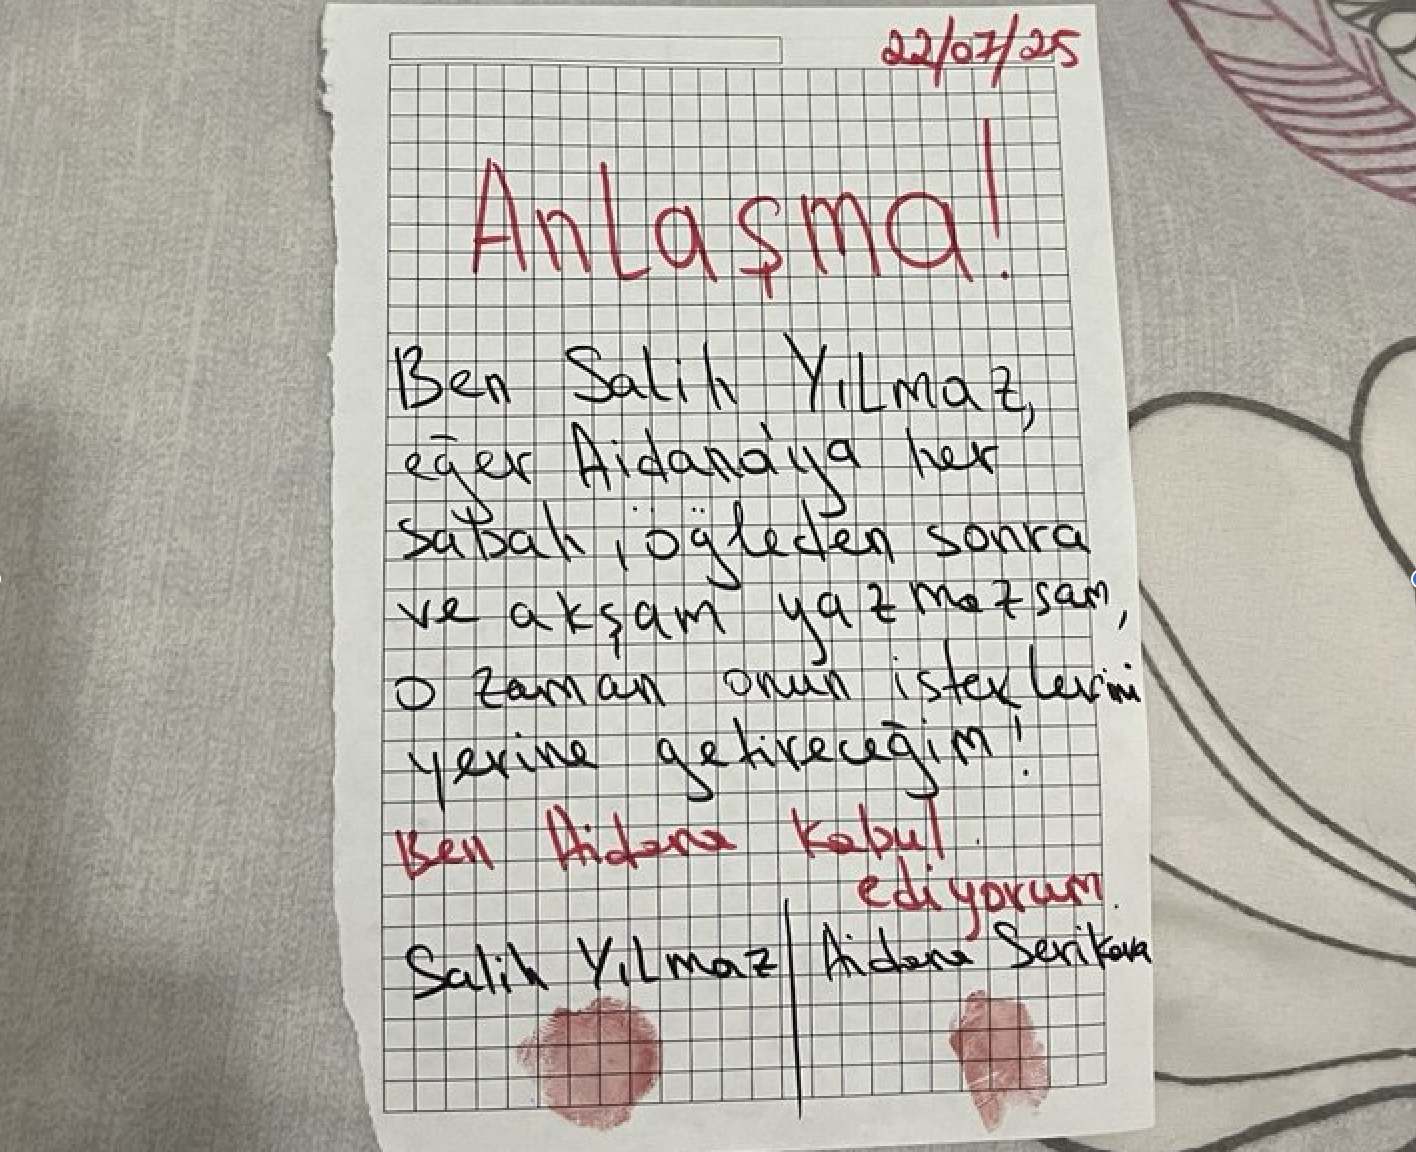 22/07/25
Anlaşma!
Ben Salih Yılmaz,
eğer Aidana'ya her
sabah, öğleden sonra
ve akşam yazmazsam,
o zaman onun isteklerini
yerine getireceğim!
Ben Aidana kabul
ediyorum.
Salih Yılmaz | Aidana Serikova